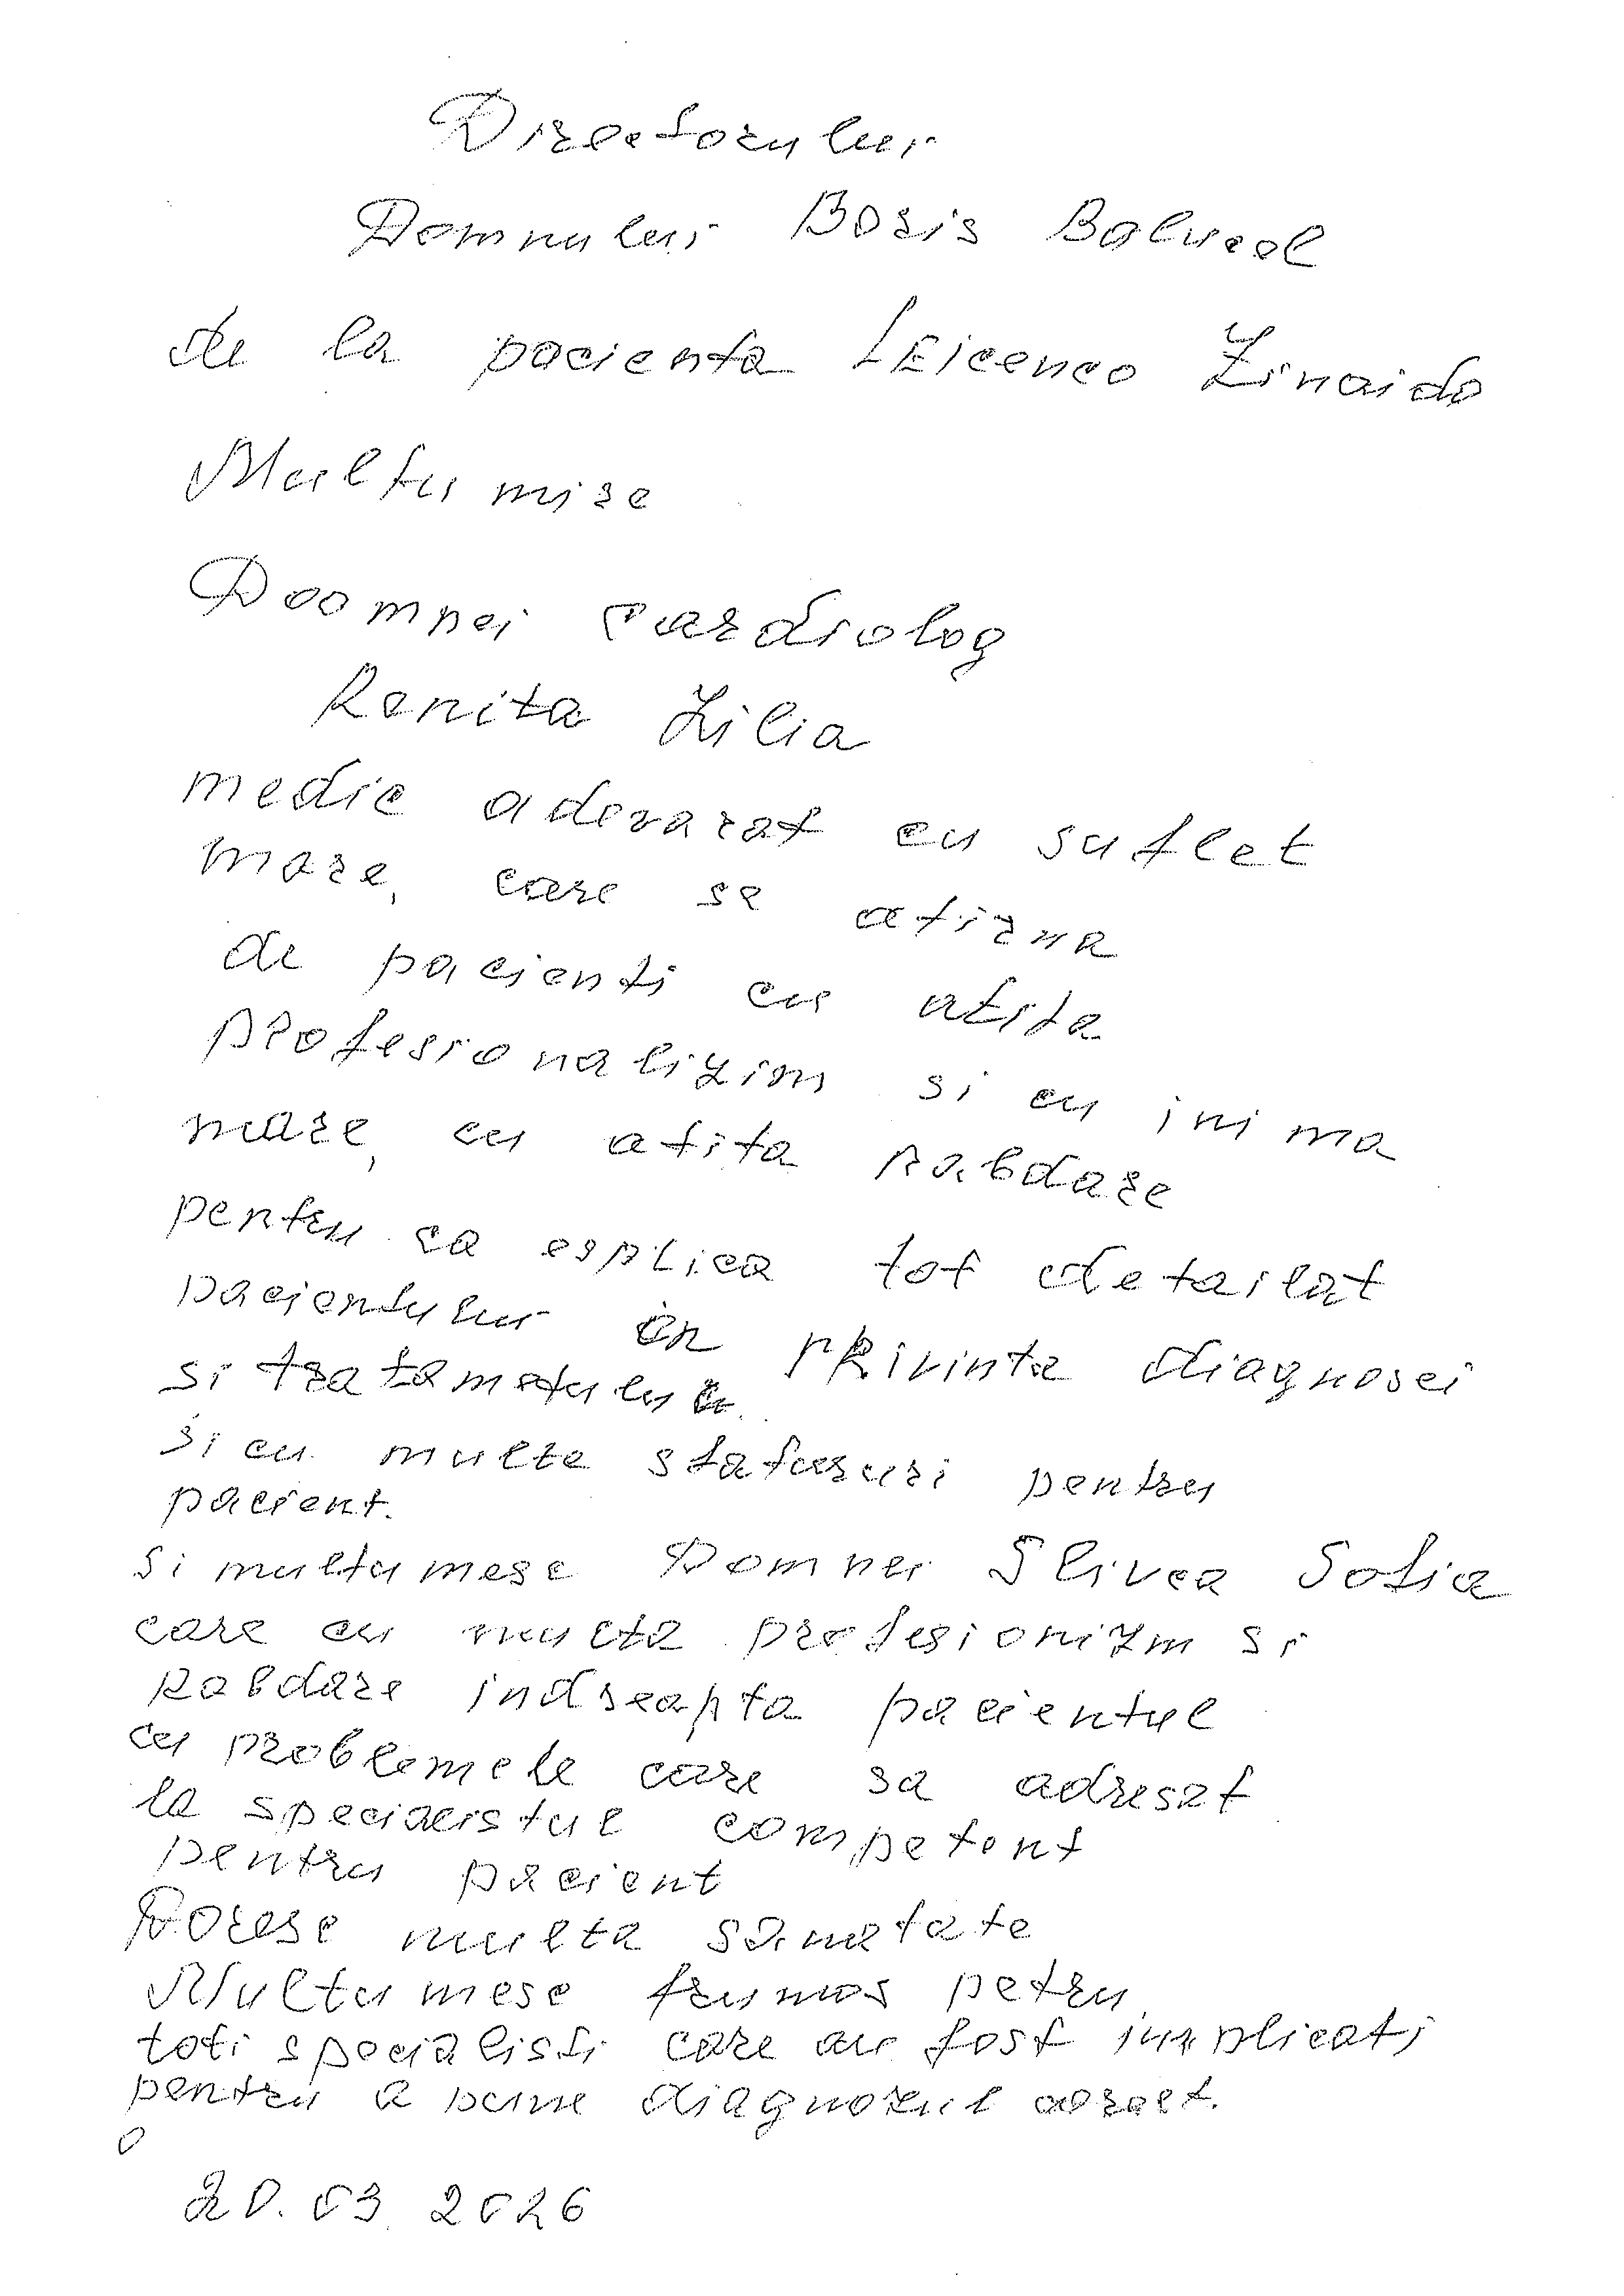 Directorului
Domnului Boris Golovin
de la pacienta Leicenco Zinaida
Multumire
Doomnei cardiolog
Renita Lilia
medic adevarat cu suflet
mare, care se atirna
de pacienti cu atita
profesionalizim si cu inima
mare, cu atita rabdare
pentru ca esplica tot detailat
pacientului în privinta diagnosei
si tratametului
si cu multe sfatururi pentru
pacient.
Si multumesc Domnei Slivca Sofia
care cu multa profesionizm si
rabdare indreapta pacientul
cu problemele care sa adresat
la specialistul competent
pentru pacient
Doresc multa sanatate
Multumesc frumos petru
toti specialisti care au fost implicati
pentru a pune diagnozul corect.
20.03.2026